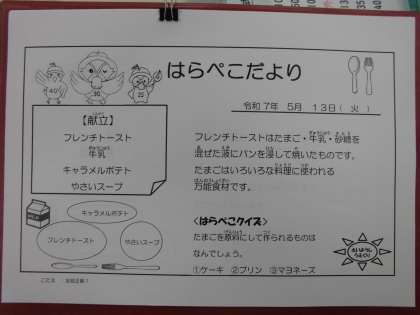 はらぺこだより
令和 7年 5月 13日( 火 )
【献立】
フレンチトースト
牛乳
キャラメルポテト
やさいスープ
フレンチトーストはたまご・牛乳・砂糖を
混ぜた液にパンを浸して焼いたものです。
たまごはいろいろな料理に使われる
万能食材です。
キャラメルポテト
フレンチトースト
やさいスープ
<はらぺこクイズ>
たまごを原料にして作られるものは
なんでしょう。
①ケーキ ②プリン ③マヨネーズ